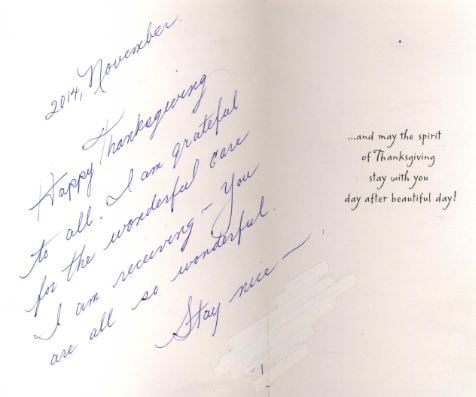 2014, November.
Happy Thanksgiving
to all. I am grateful
for the wonderful care
I am receiving - You
are all so wonderful.
Stay nice - !
...and may the spirit
of Thanksgiving
stay with you
day after beautiful day!